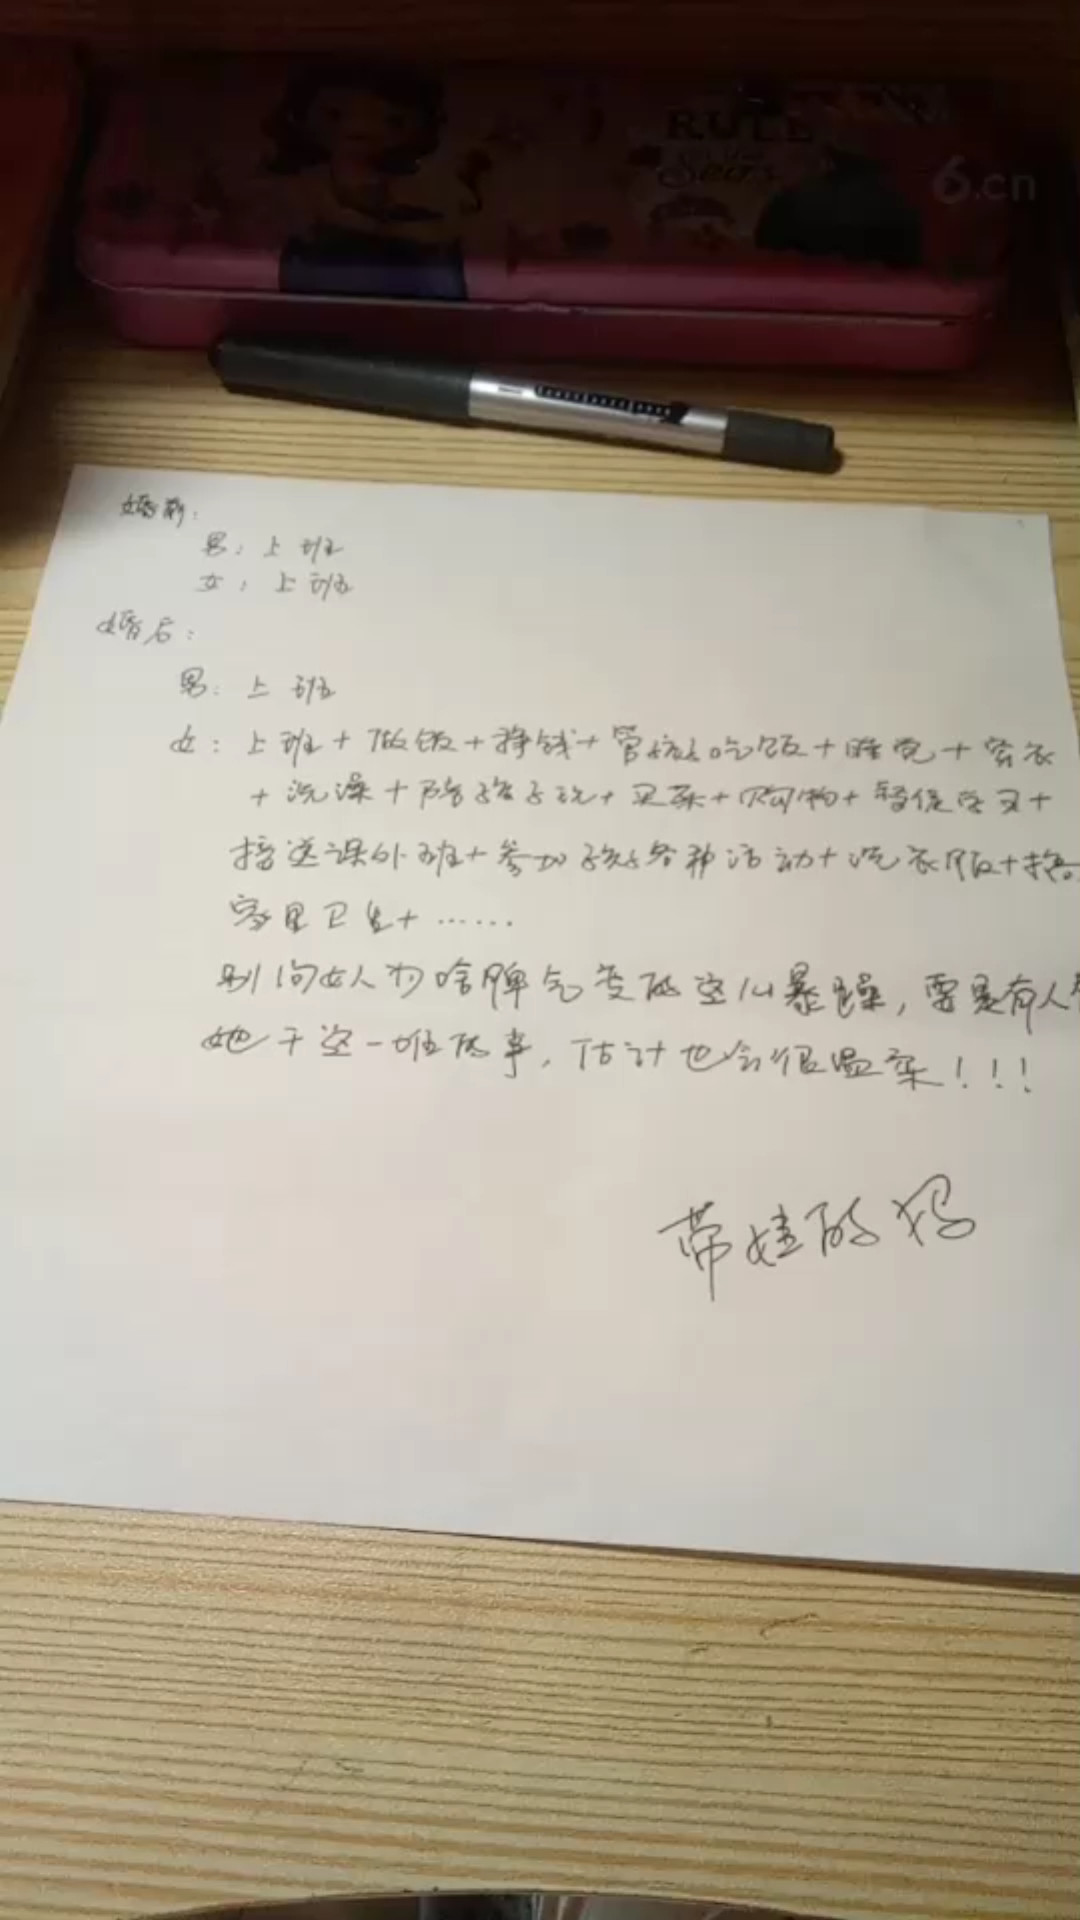 RULE
the Seas
6.cn
婚前:
男: 上班
女: 上班
婚后:
男: 上班
女: 上班+做饭+挣钱+管孩子吃饭+睡觉+穿衣
+洗澡+陪孩子玩+买菜+购物+辅佐学习+
接送课外班+参加孩子各种活动+洗衣服+搞
家里卫生+……
别问女人为啥脾气变的这么暴躁,要是有人
她干这一堆破事,估计也会很温柔!!!
带娃的妈